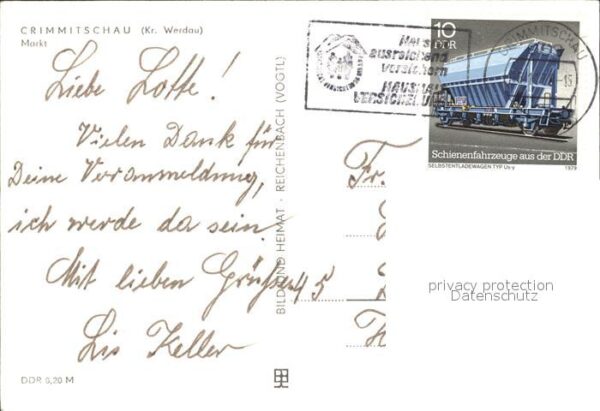 CRIMMITSCHAU (Kr. Werdau)
Markt
Liebe Lotte!
Vielen Dank für
Deine Voranmeldung,
ich werde da sein.
Mit lieben Grüßen
Lis Keller
DDR 0,20 M
BILD UND HEIMAT · REICHENBACH (VOGTL)
45
Fr.
ausreichend
versichern
HAUSHALT
VERSICHERUNG
CRIMMITSCHAU
10
DDR
Schienenfahrzeuge aus der DDR
SELBSTENTLADEWAGEN TYP Us-y 1979
privacy protection
Datenschutz